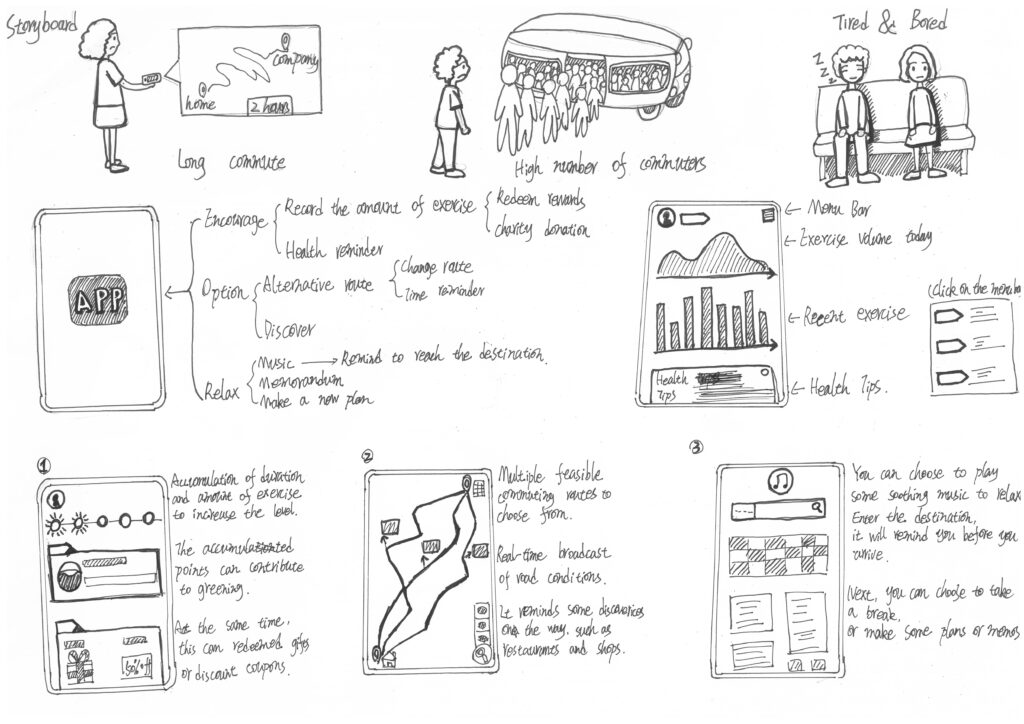 Storyboard
company
home
2 hours
Long commute
High number of commuters
Tired & Bored
Z
Z
Z
APP
Encourage
Record the amount of exercise
Redeem rewards
charity donation
Health reminder
Option
Alternative route
Change route
Time reminder
Discover
Relax
Music → Remind to reach the destination.
Memorandum
Make a new plan
Menu Bar
Exercise volume today
Recent exercise
Health Tips.
Health
Tips
(click on the menu ba
①
Accumulation of duration
and amount of exercise
to increase the level.
The accumulationted
points can contribute
to greening.
At the same time,
this can redeemed gifts
or discount coupons.
50% off
②
Multiple feasible
commuting routes to
choose from.
Real-time broadcast
of road conditions.
It reminds some discoveries
on the way, such as
restaurants and shops.
③
You can choose to play
some soothing music to relax
Enter the destination,
it will remind you before you
arrive.
Next, you can choose to take
a break,
or make some plans or memos